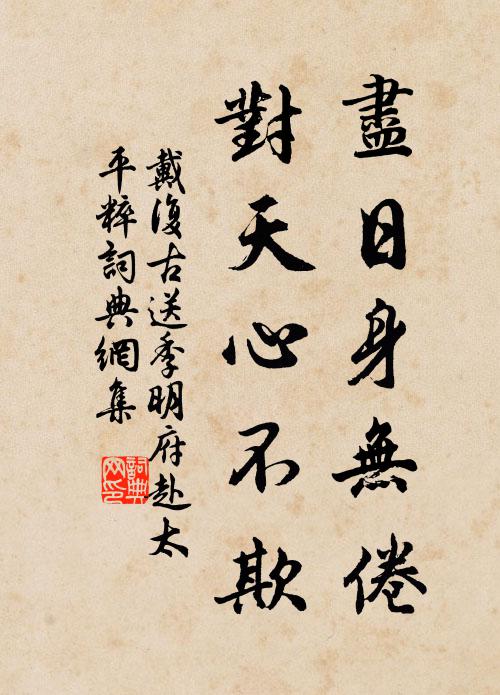 盡日身無倦
對天心不欺
戴復古送季明府赴太
平粹詞典網集
詞典
网印